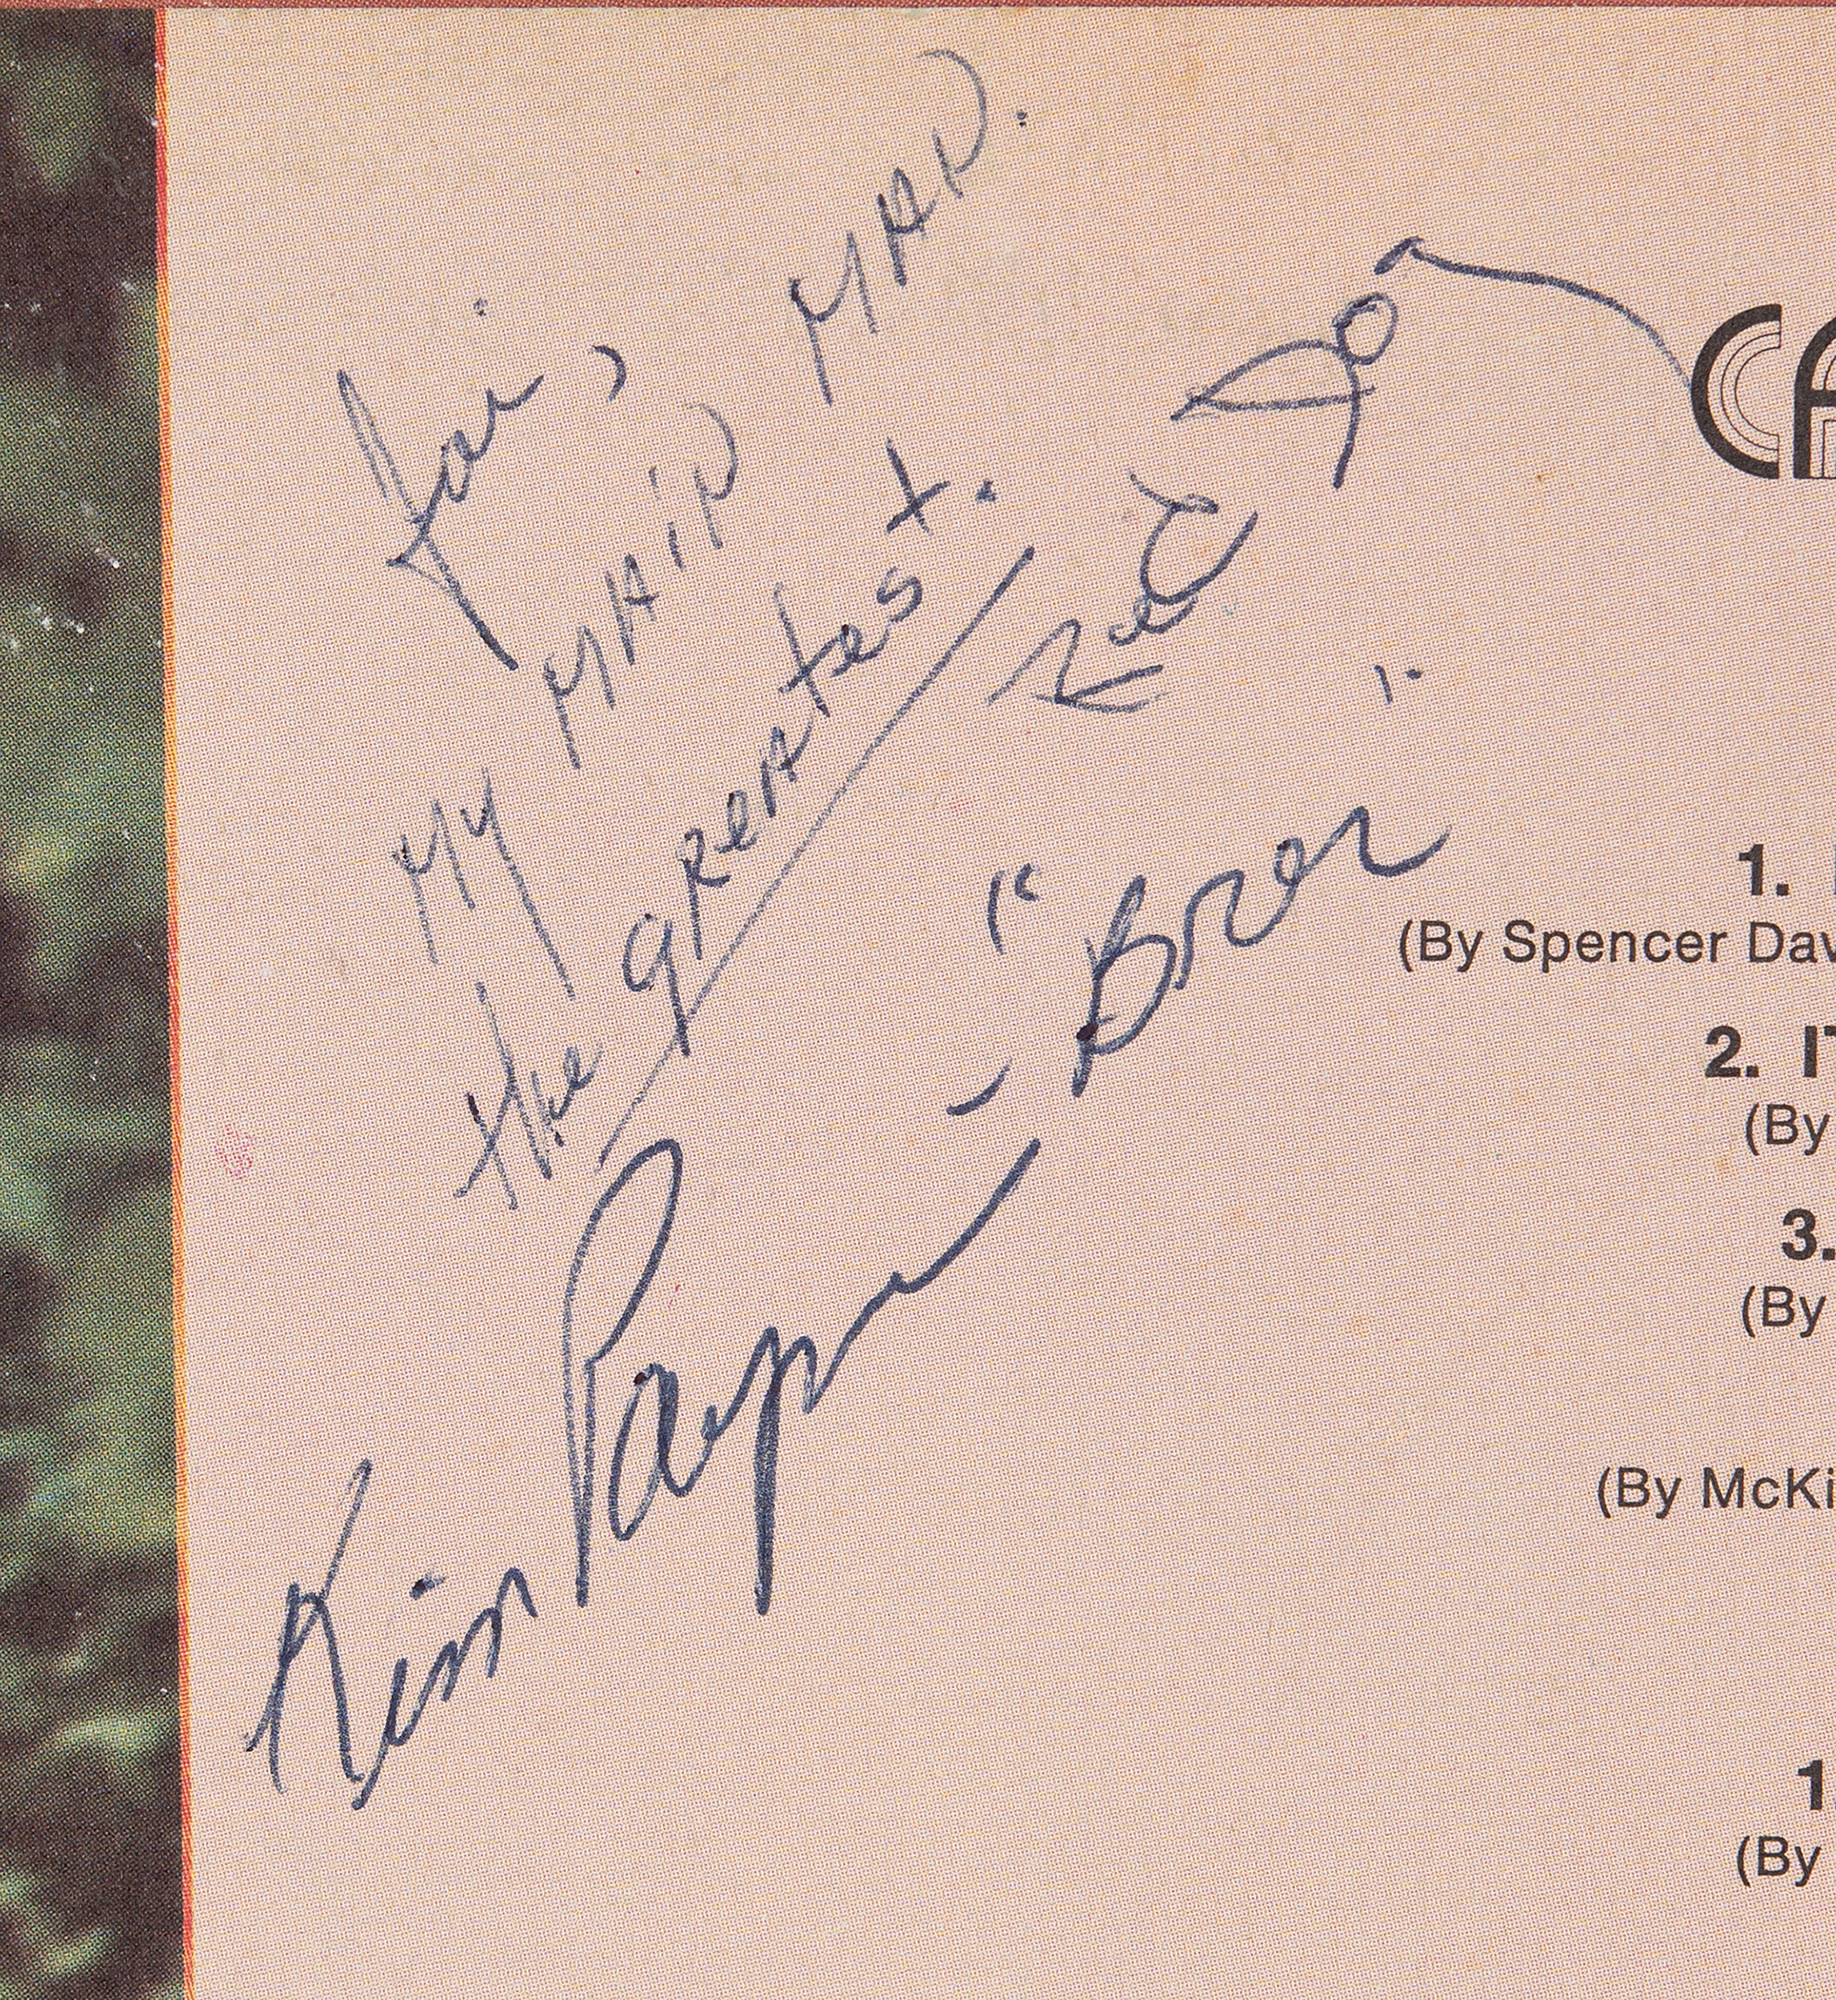 Jai,
My MAIN MAN.
the greatest.
Red Dog
Kim Payne - "Bror"
CA
1.
(By Spencer Dav
2. IT
(By
3.
(By
(By McKi
1.
(By